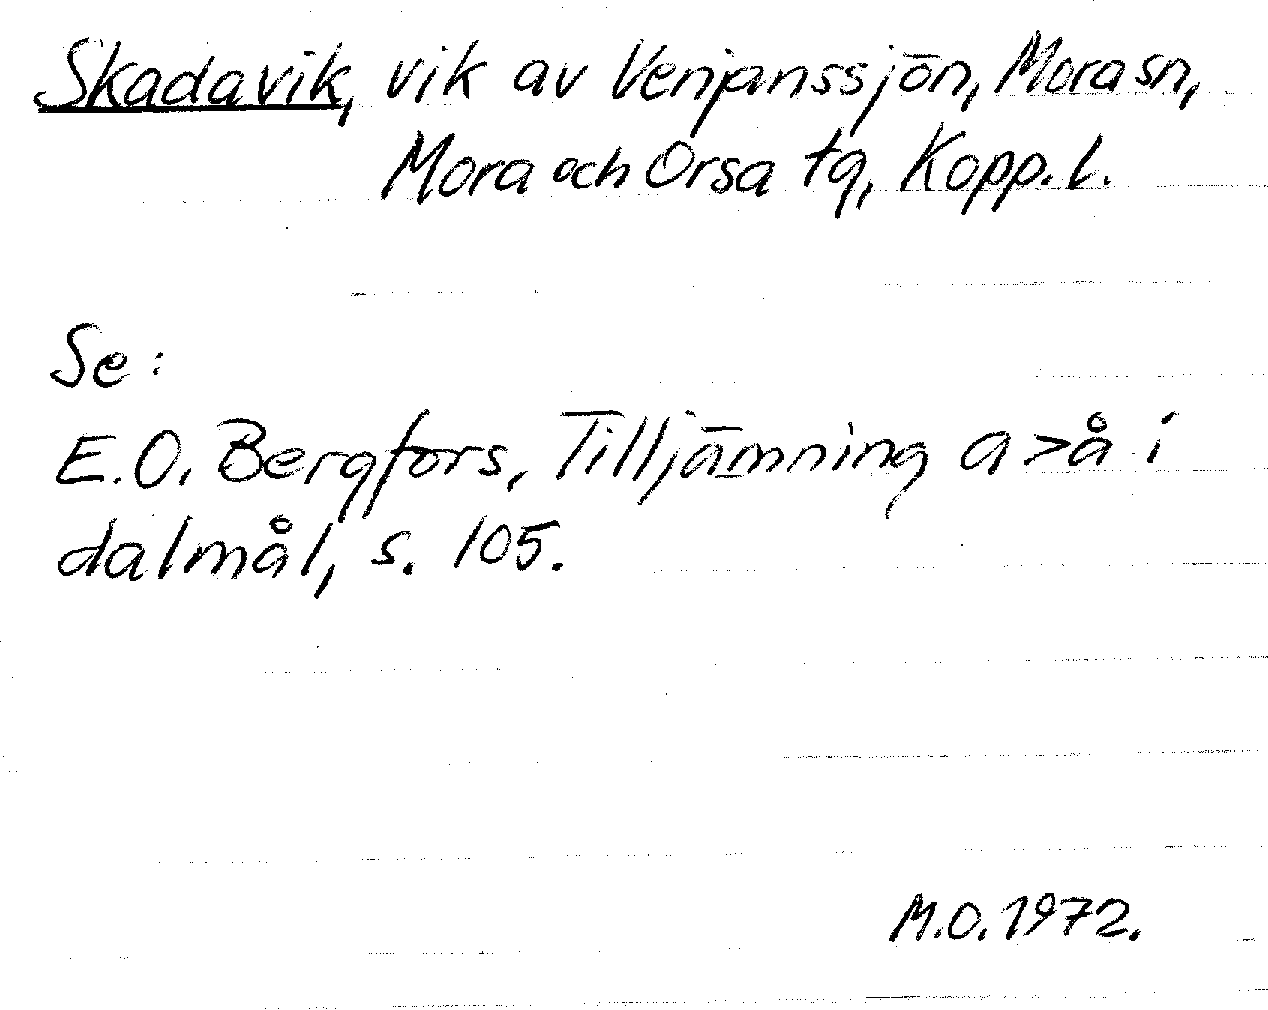 Skadavik, vik av Venjanssjön, Mora sn,
Mora och Orsa tg, Kopp. l.
Se:
E.O. Bergfors, Tilljämning a>å i
dalmål, s. 105.
M.O. 1972.